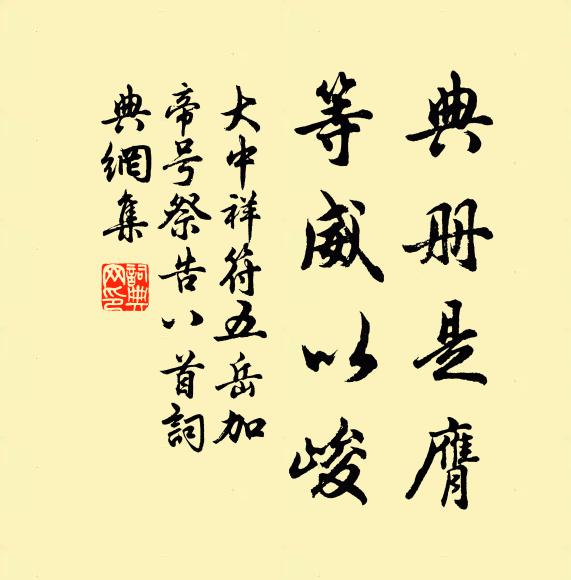 典册是膺
等威以峻
大中祥符五岳加
帝号祭告八首詞
典網集
詞典网印